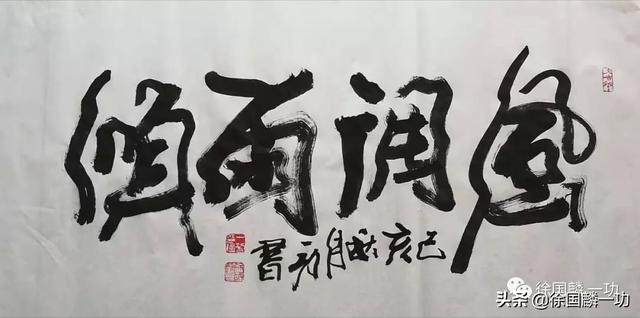 風調雨順
己亥秋月書
徐国麟一功
头条 @徐国麟一功